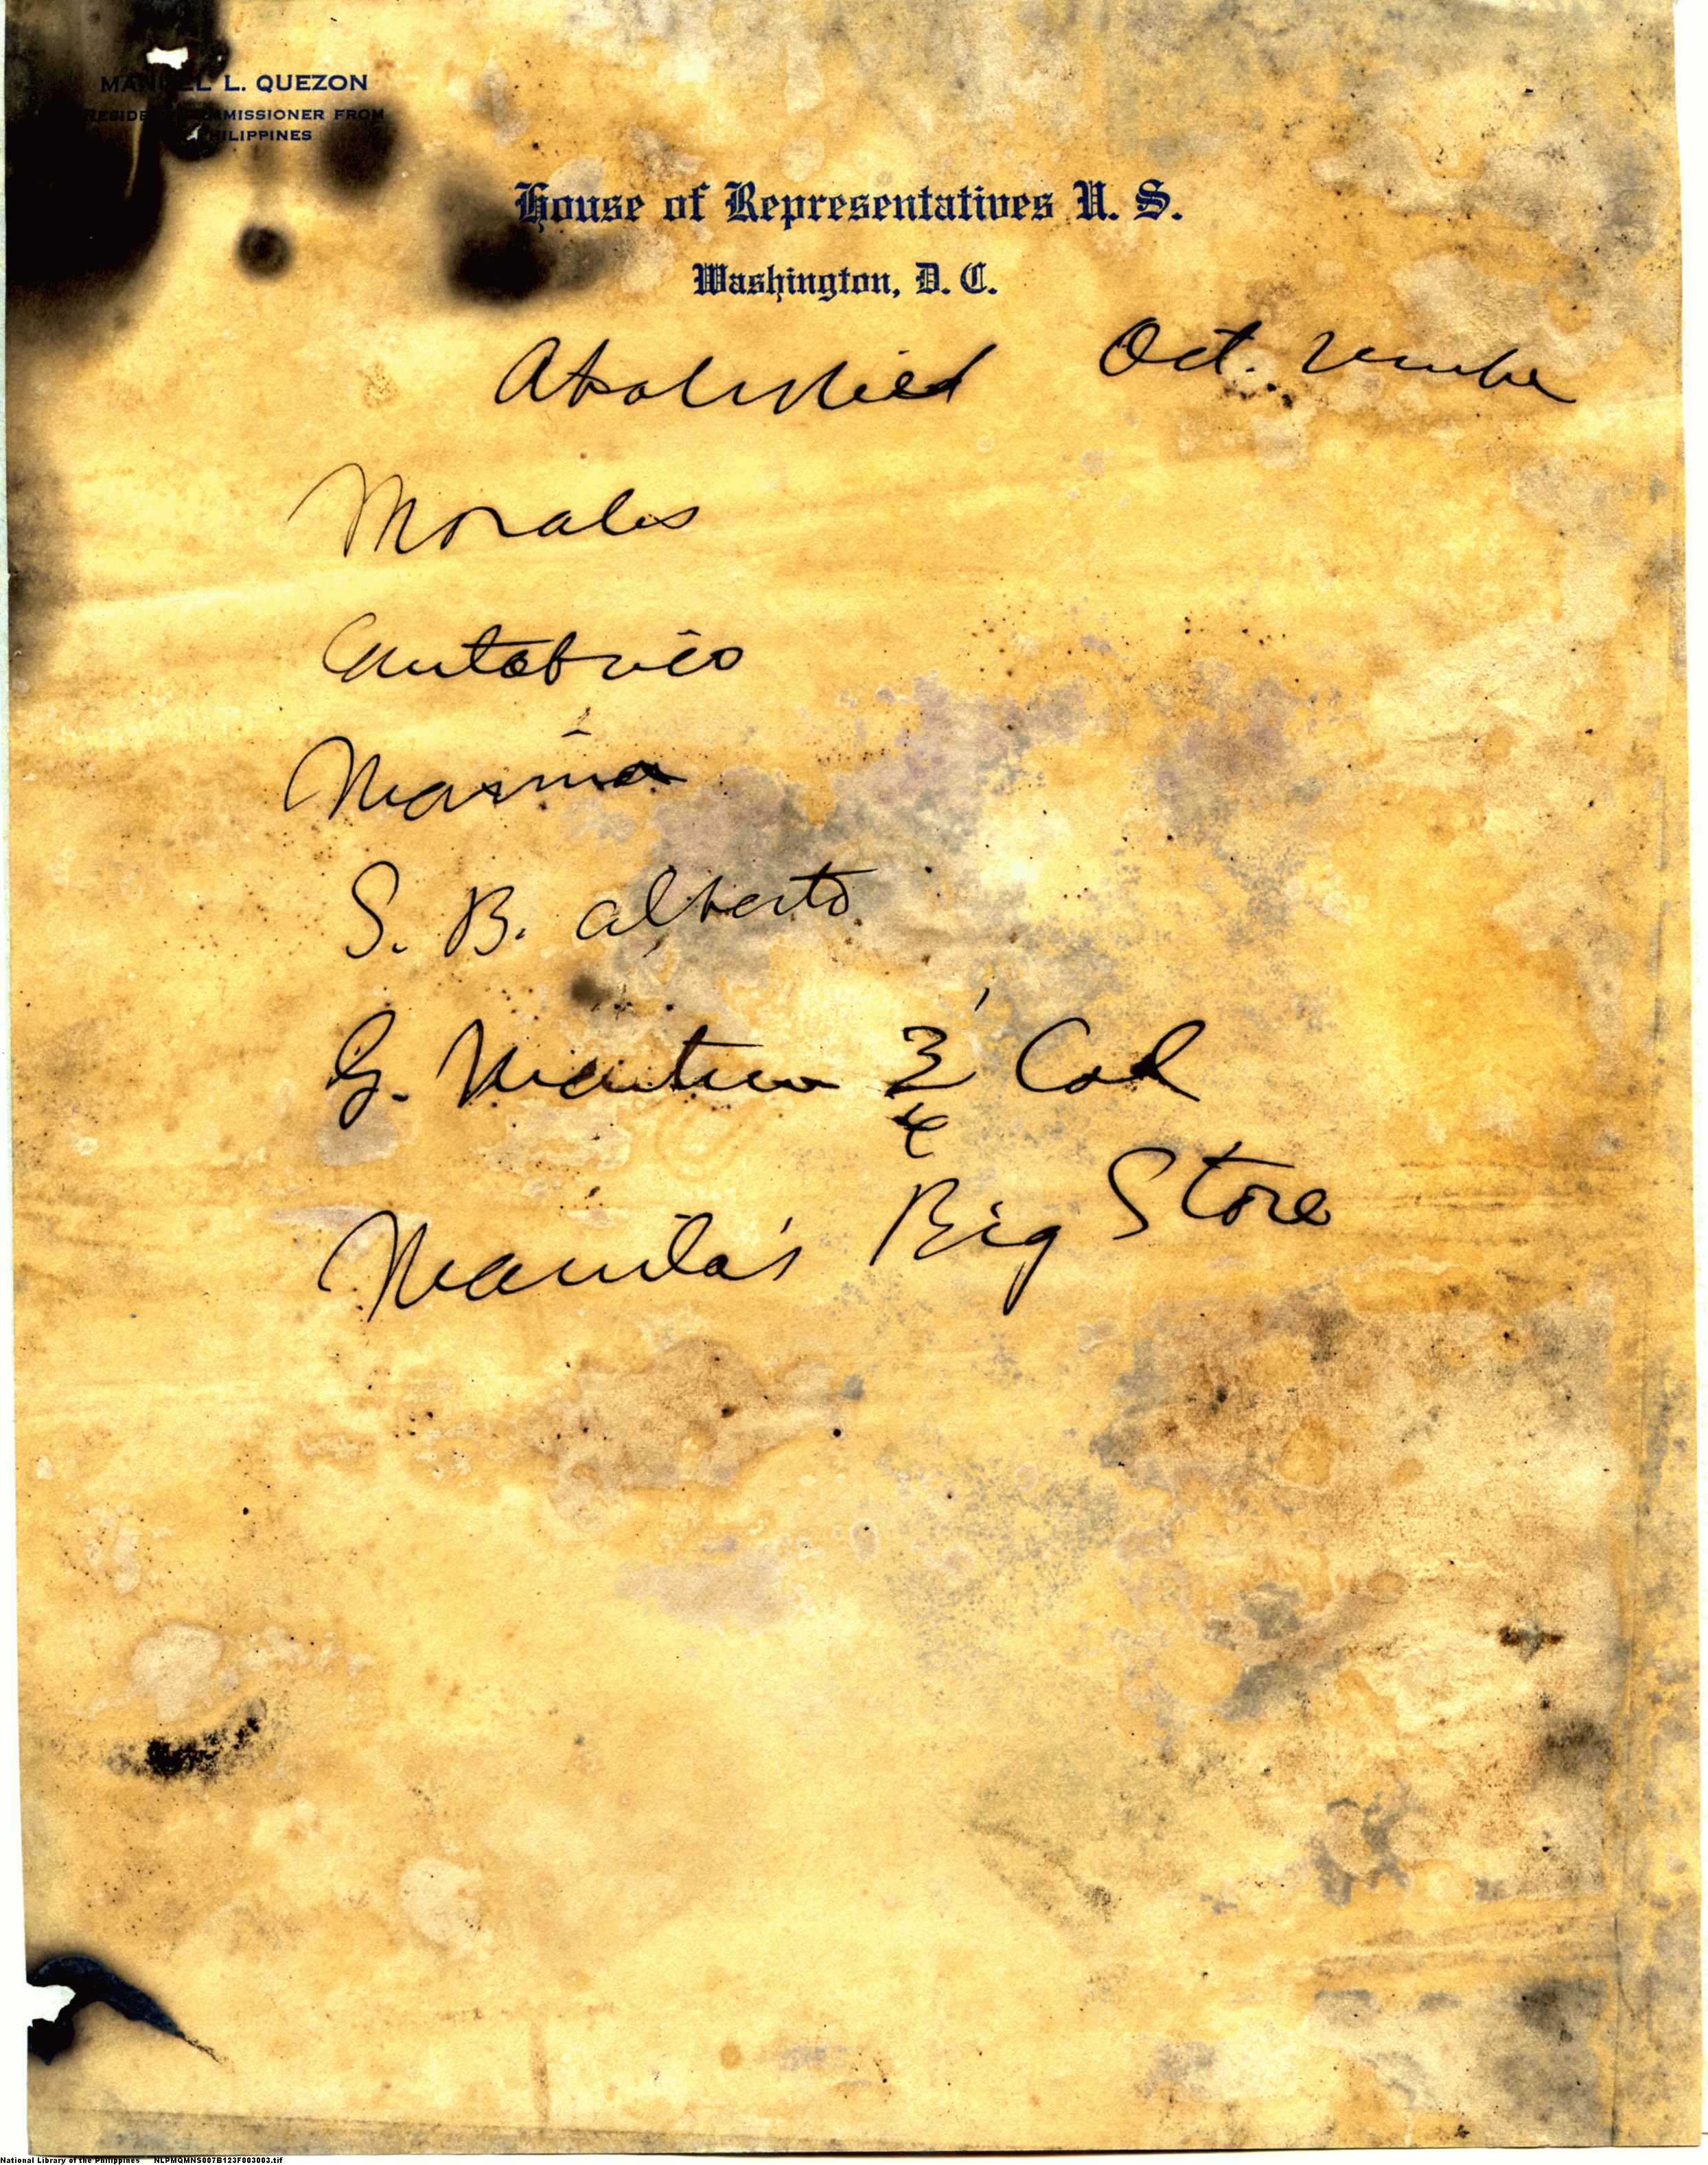 MANUEL L. QUEZON
RESIDENT COMMISSIONER FROM
PHILIPPINES
House of Representatives U. S.
Washington, D. C.
Abolished Oct.
Morales
Marina
S. B. Alberto
G. 3 Cod
Manila's Big Store
National Library of the Philippines NLPMQMNS007B123F003003.tif